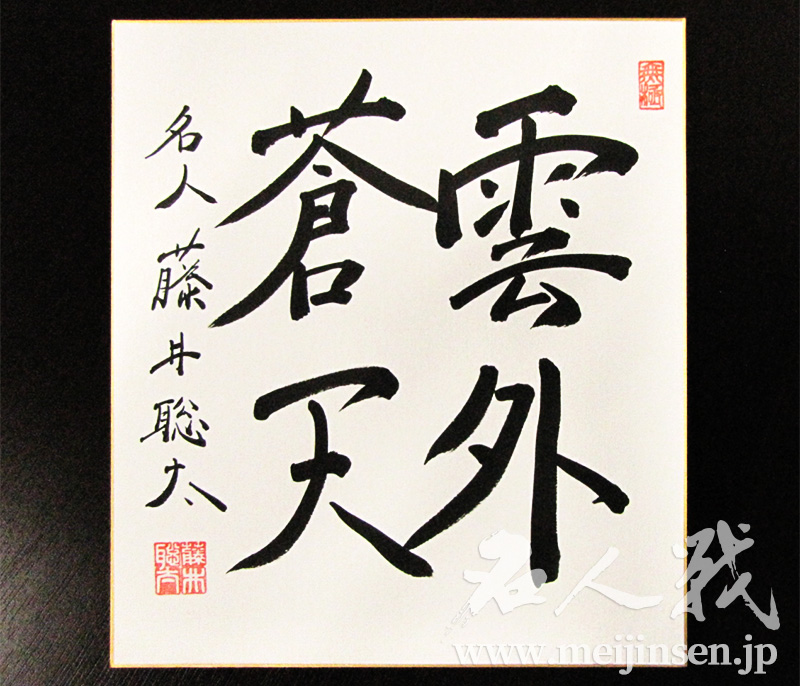 雲外
蒼天
名人 藤井聡太
無極
藤井聡太
名人戦
www.meijinsen.jp